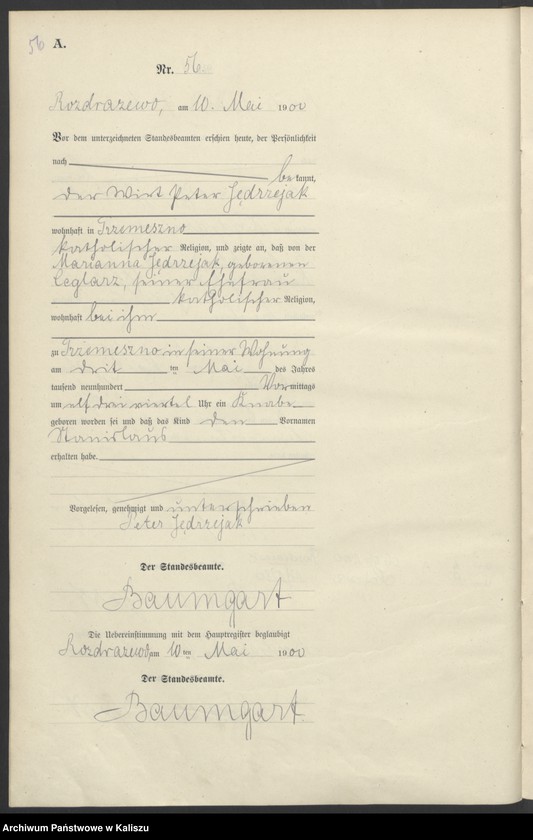 56 A.
Nr. 56.
Rozdrazewo, am 10. Mai 1900
Vor dem unterzeichneten Standesbeamten erschien heute, der Persönlichkeit
nach
be kannt,
der Wirt Peter Jędrzejak
wohnhaft in Trzemeszno
katholischer Religion, und zeigte an, daß von der
Marianna Jędrzejak, geborenen
Ceglarz, seiner Ehefrau
katholischer Religion,
wohnhaft bei ihm
zu Trzemeszno in seiner Wohnung
am drit ten Mai des Jahres
tausend neunhundert Vor mittags
um elf drei viertel Uhr ein Knabe
geboren worden sei und daß das Kind den Vornamen
Stanislaus
erhalten habe.
Vorgelesen, genehmigt und unterschrieben
Peter Jędrzejak
Der Standesbeamte.
Baumgart
Die Uebereinstimmung mit dem Hauptregister beglaubigt
Rozdrazewo, am 10 ten Mai 1900
Der Standesbeamte.
Baumgart.
Archiwum Państwowe w Kaliszu